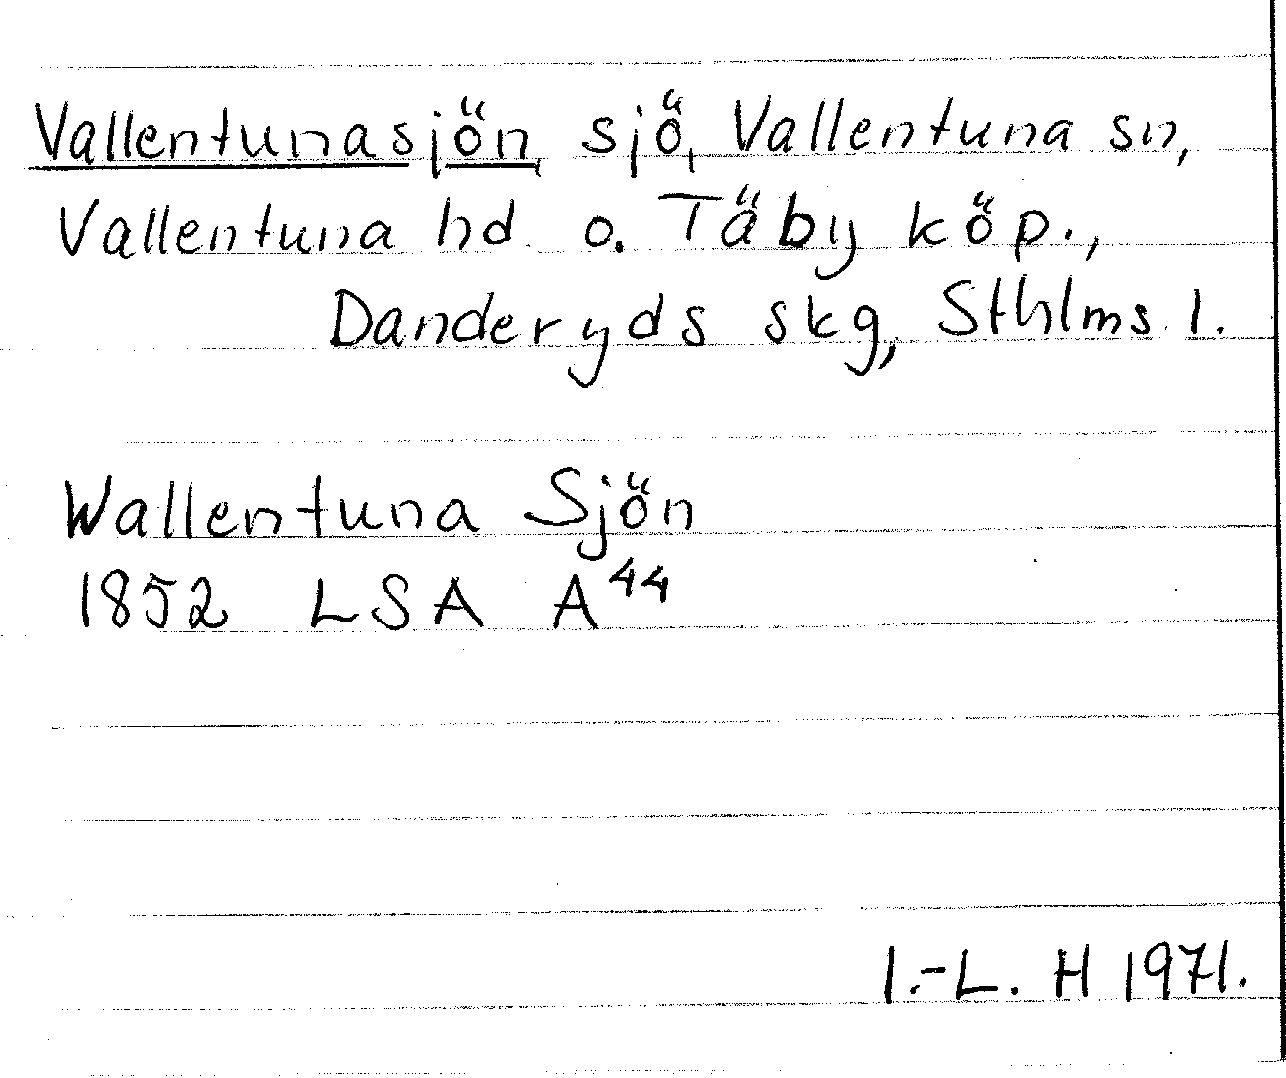 Vallentunasjön, sjö, Vallentuna sn,
Vallentuna hd o. Täby köp.,
Danderyds skg, Sthlms l.
Wallentuna Sjön
1852 LSA A⁴⁴
I.-L. H 1971.